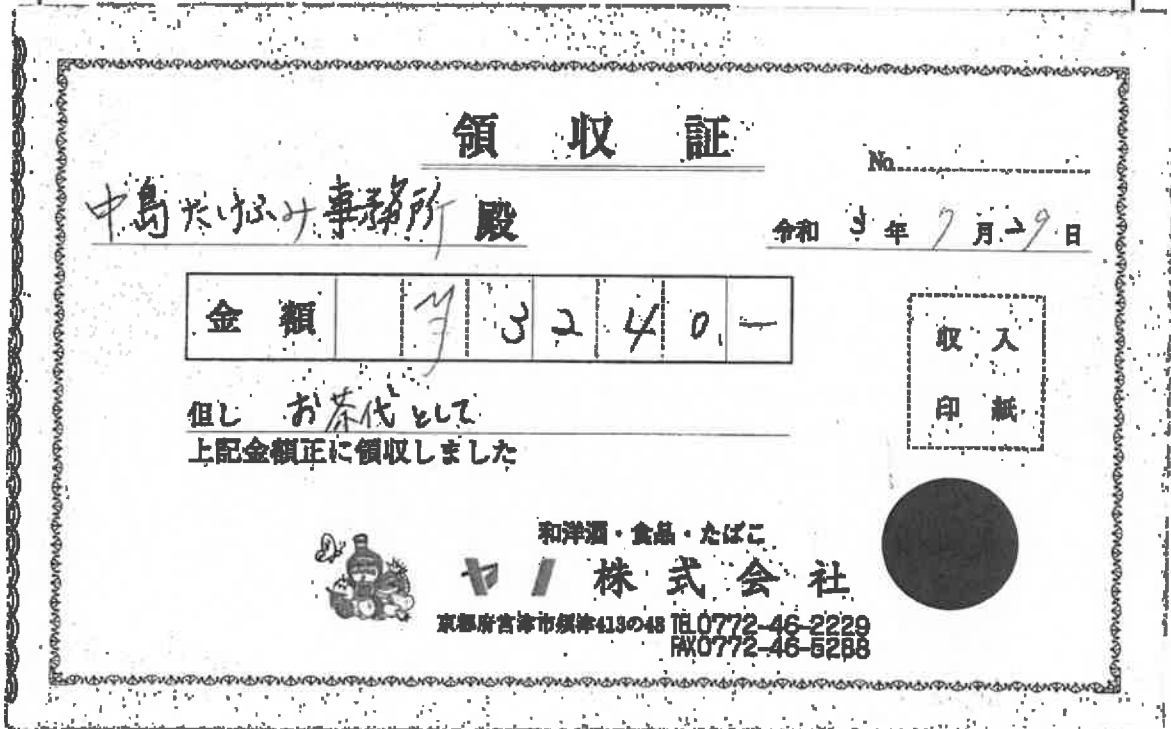 領収証
No.
中島たけふみ事務所 殿
令和 3 年 7 月 29 日
金額 ¥3240.-
収入
印紙
但し お茶代として
上記金額正に領収しました
和洋酒・食品・たばこ
ヤノ株式会社
京都府宮津市須津413の43 TEL0772-46-2229
FAX0772-46-5288